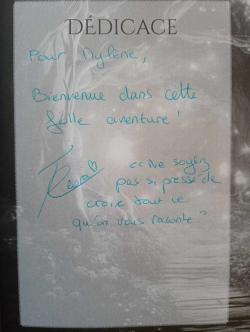 DÉDICACE
Pour Mylène,
Bienvenue dans cette
folle aventure !
"Ne soyez
pas si pressé de
croire tout ce
qu'on vous raconte"